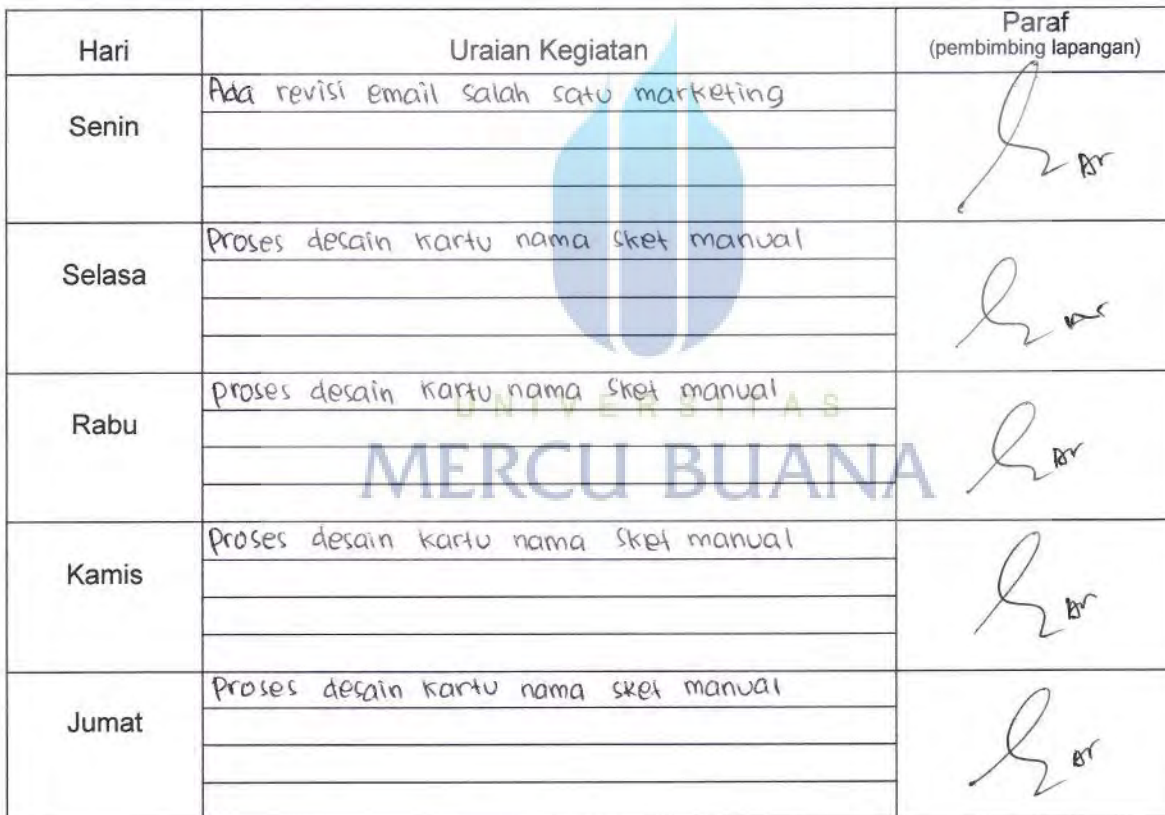 Hari Uraian Kegiatan Paraf
(pembimbing lapangan)
Senin
Ada revisi email salah satu marketing
Selasa
Proses desain kartu nama sket manual
Rabu
proses desain kartu nama sket manual
UNIVERSITAS
MERCU BUANA
Kamis
Proses desain kartu nama sket manual
Jumat
Proses desain kartu nama sket manual